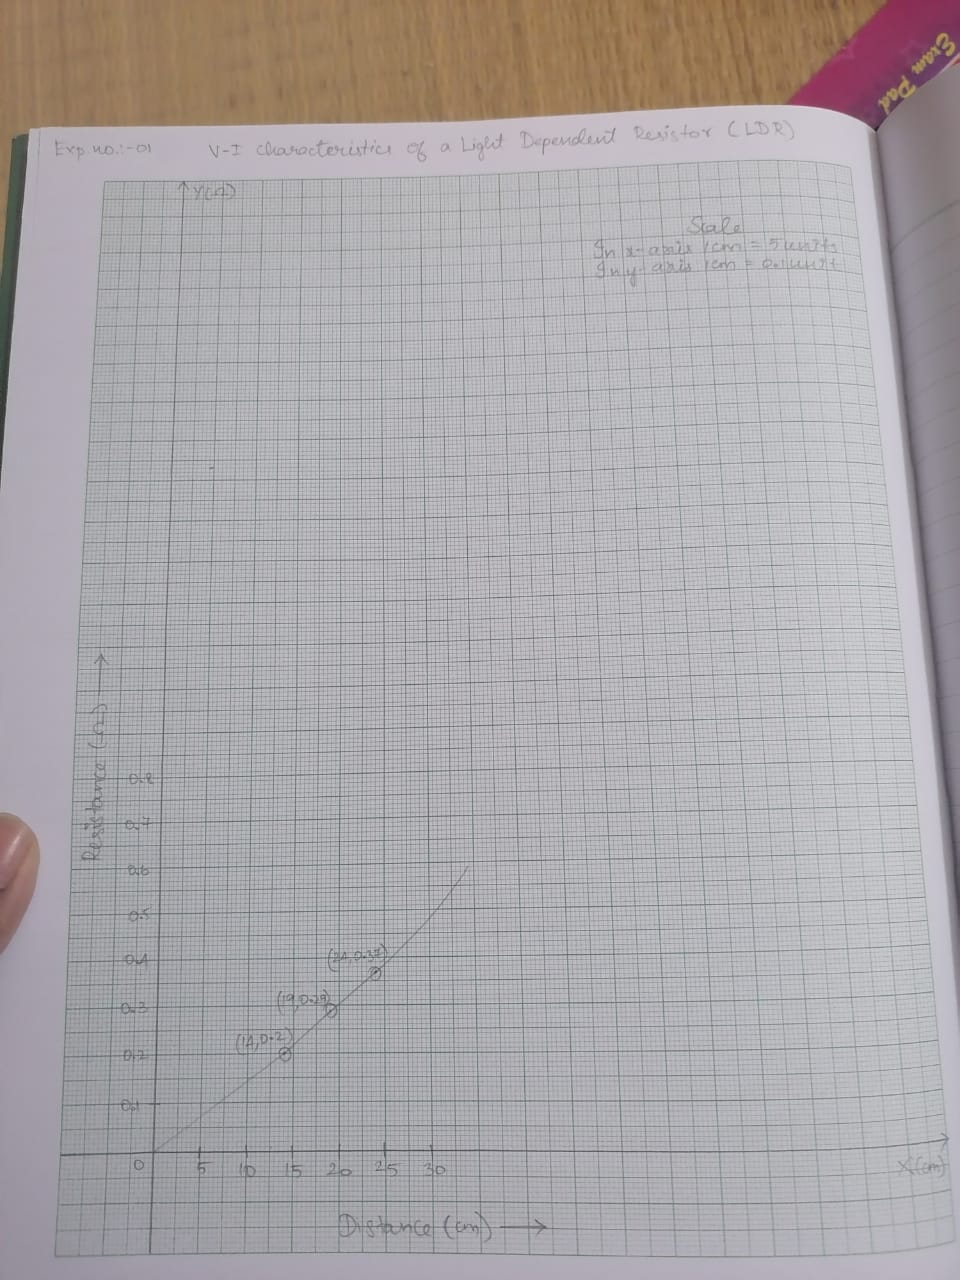 Exam Pad
Exp. no.:-01 V-I characteristics of a Light Dependent Resistor (LDR)
Y(Ω)
Scale
In x-axis 1cm = 5 units
In y-axis 1cm = 0.1 unit
Resistance (Ω)
0.8
0.7
0.6
0.5
0.4
(24,0.37)
0.3
(19,0.29)
0.2
(14,0.2)
0.1
0 5 10 15 20 25 30
X(cm)
Distance (cm)